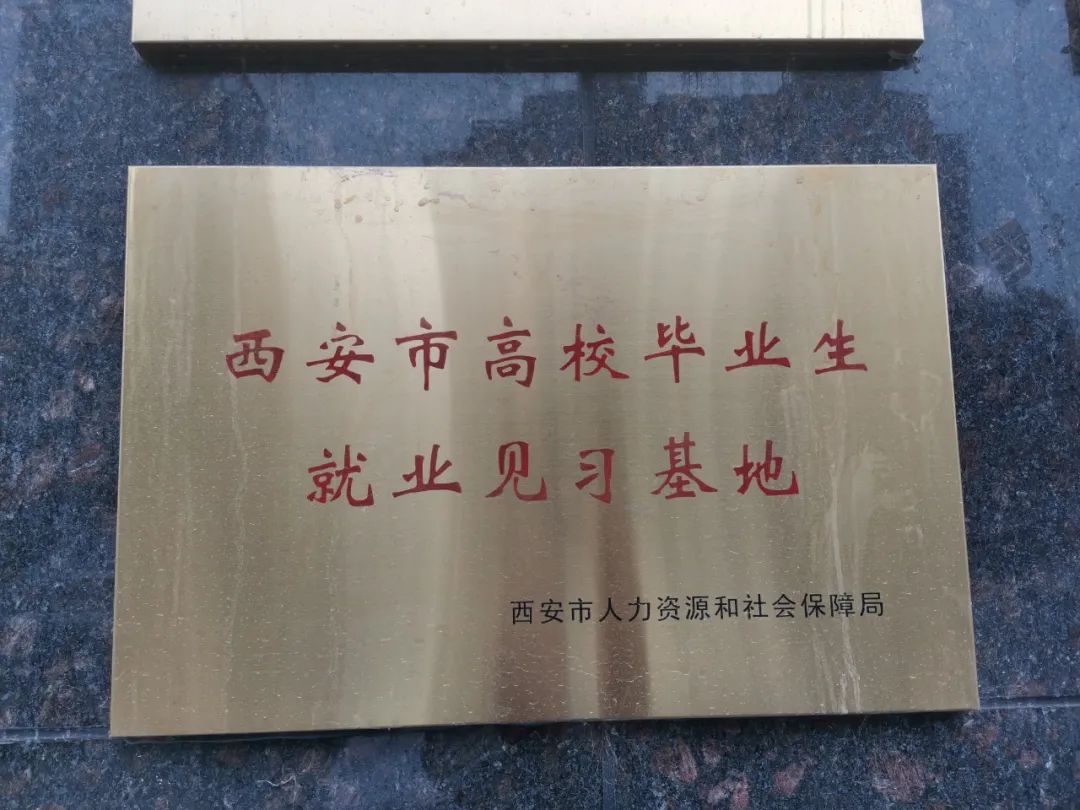 西安市高校毕业生
就业见习基地
西安市人力资源和社会保障局